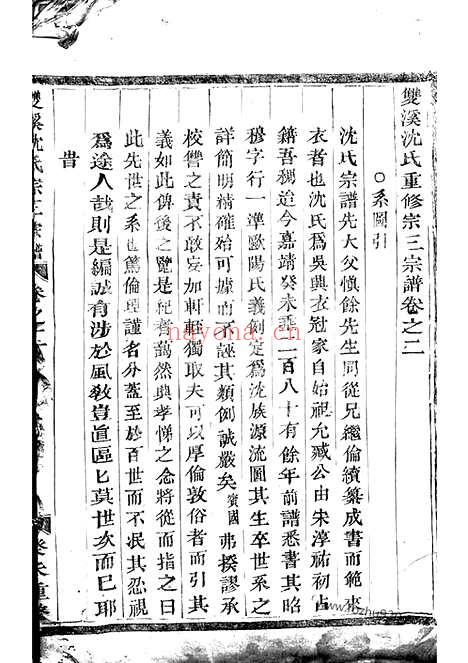 雙溪沈氏重修宗三宗譜卷之二
○系圖引
沈氏宗譜先大父慎餘先生同從兄繼倫續纂成書而範來
衣者也沈氏爲吳興衣冠家自始祖允臧公由宋淳祐初占
籍吾 迨今嘉靖癸未乘二百八十有餘年前譜悉書其昭
穆字行一準歐陽氏義刻定爲沈族源流圖其生卒世系之
詳簡明精確可據而不誣其類例誠嚴矣賓國弗揆謬承
校讐之責不敢妄加軒輊獨取夫可以厚倫敦俗者而引其
義如此俾後之覽是紀者藹然興孝悌之念將從而指之曰
此先世之系也篤倫理謹名分蓋至於百世而不泯其忍視
爲途人哉則是編誠有涉於風敎豈直區匕莫世次而巳耶
旹
雙溪沈氏宗三宗譜 卷之二
nayona.cn